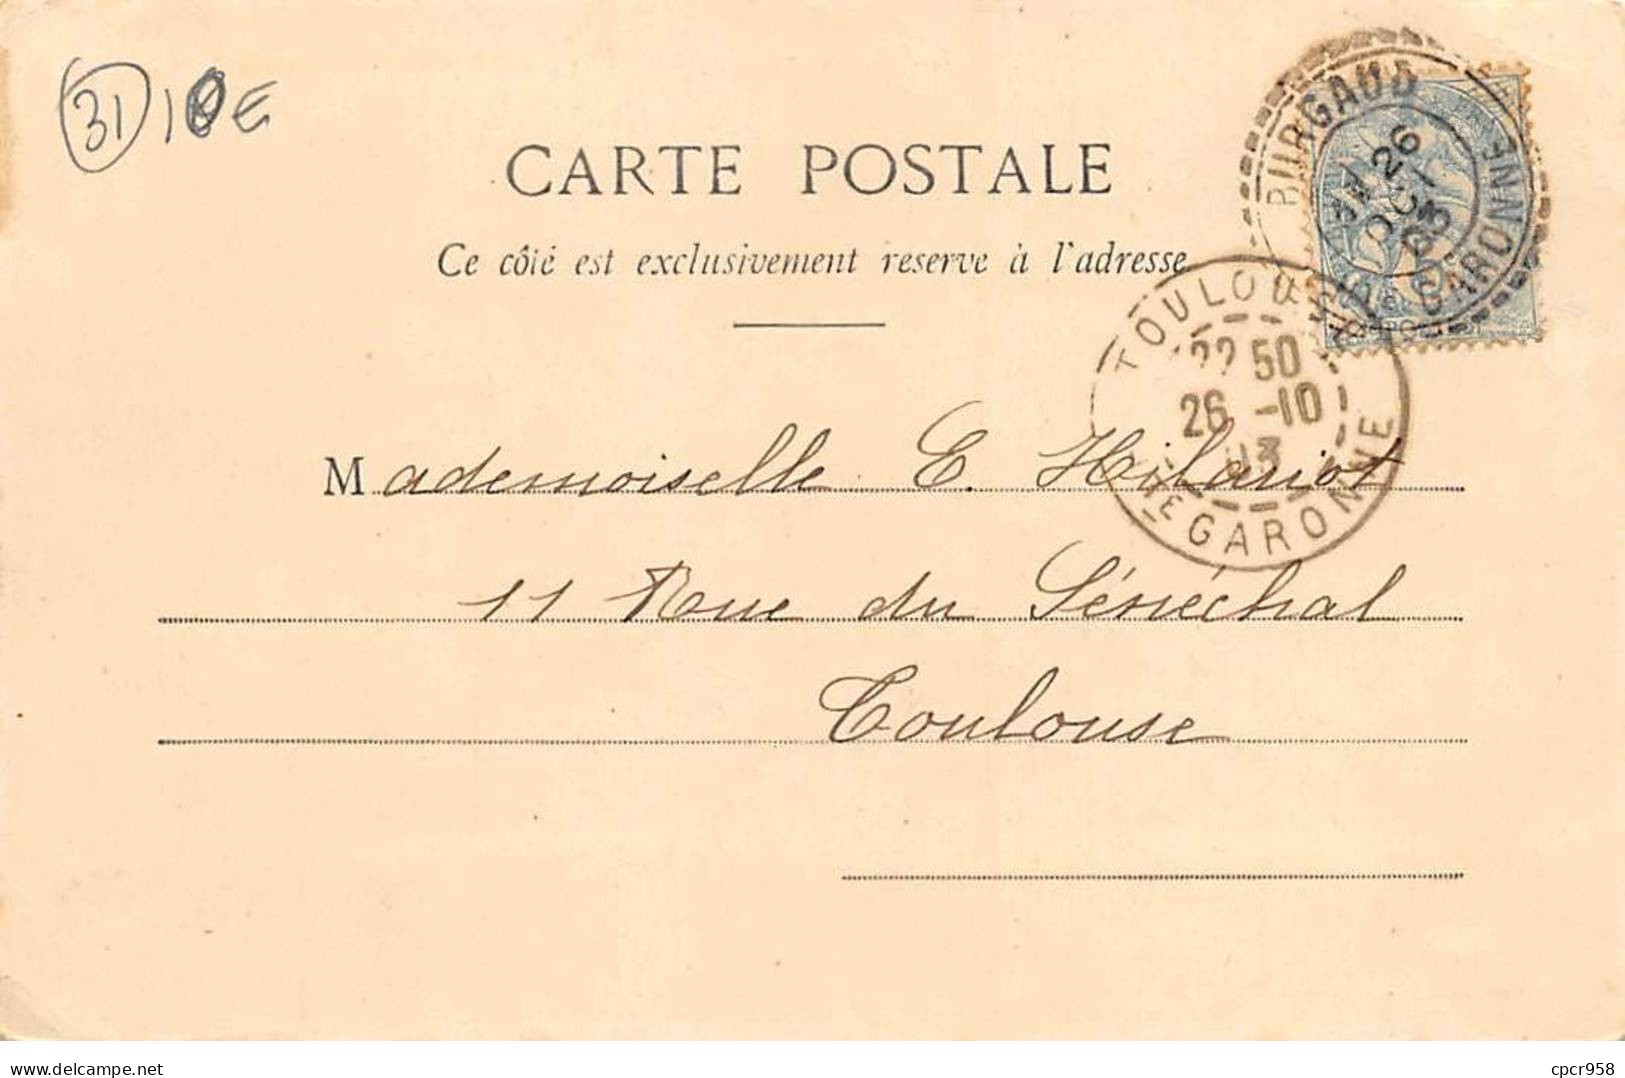 31 10E
CARTE POSTALE
Ce côté est exclusivement reserve à l'adresse.
BURGAUD
26
OCT
03
GARONNE
TOULOUSE
22 50
26 -10
03
Hte GARONNE
Mademoiselle E. Hilariot
11 Rue du Sénéchal
Toulouse
delcampe.net
cpcr958